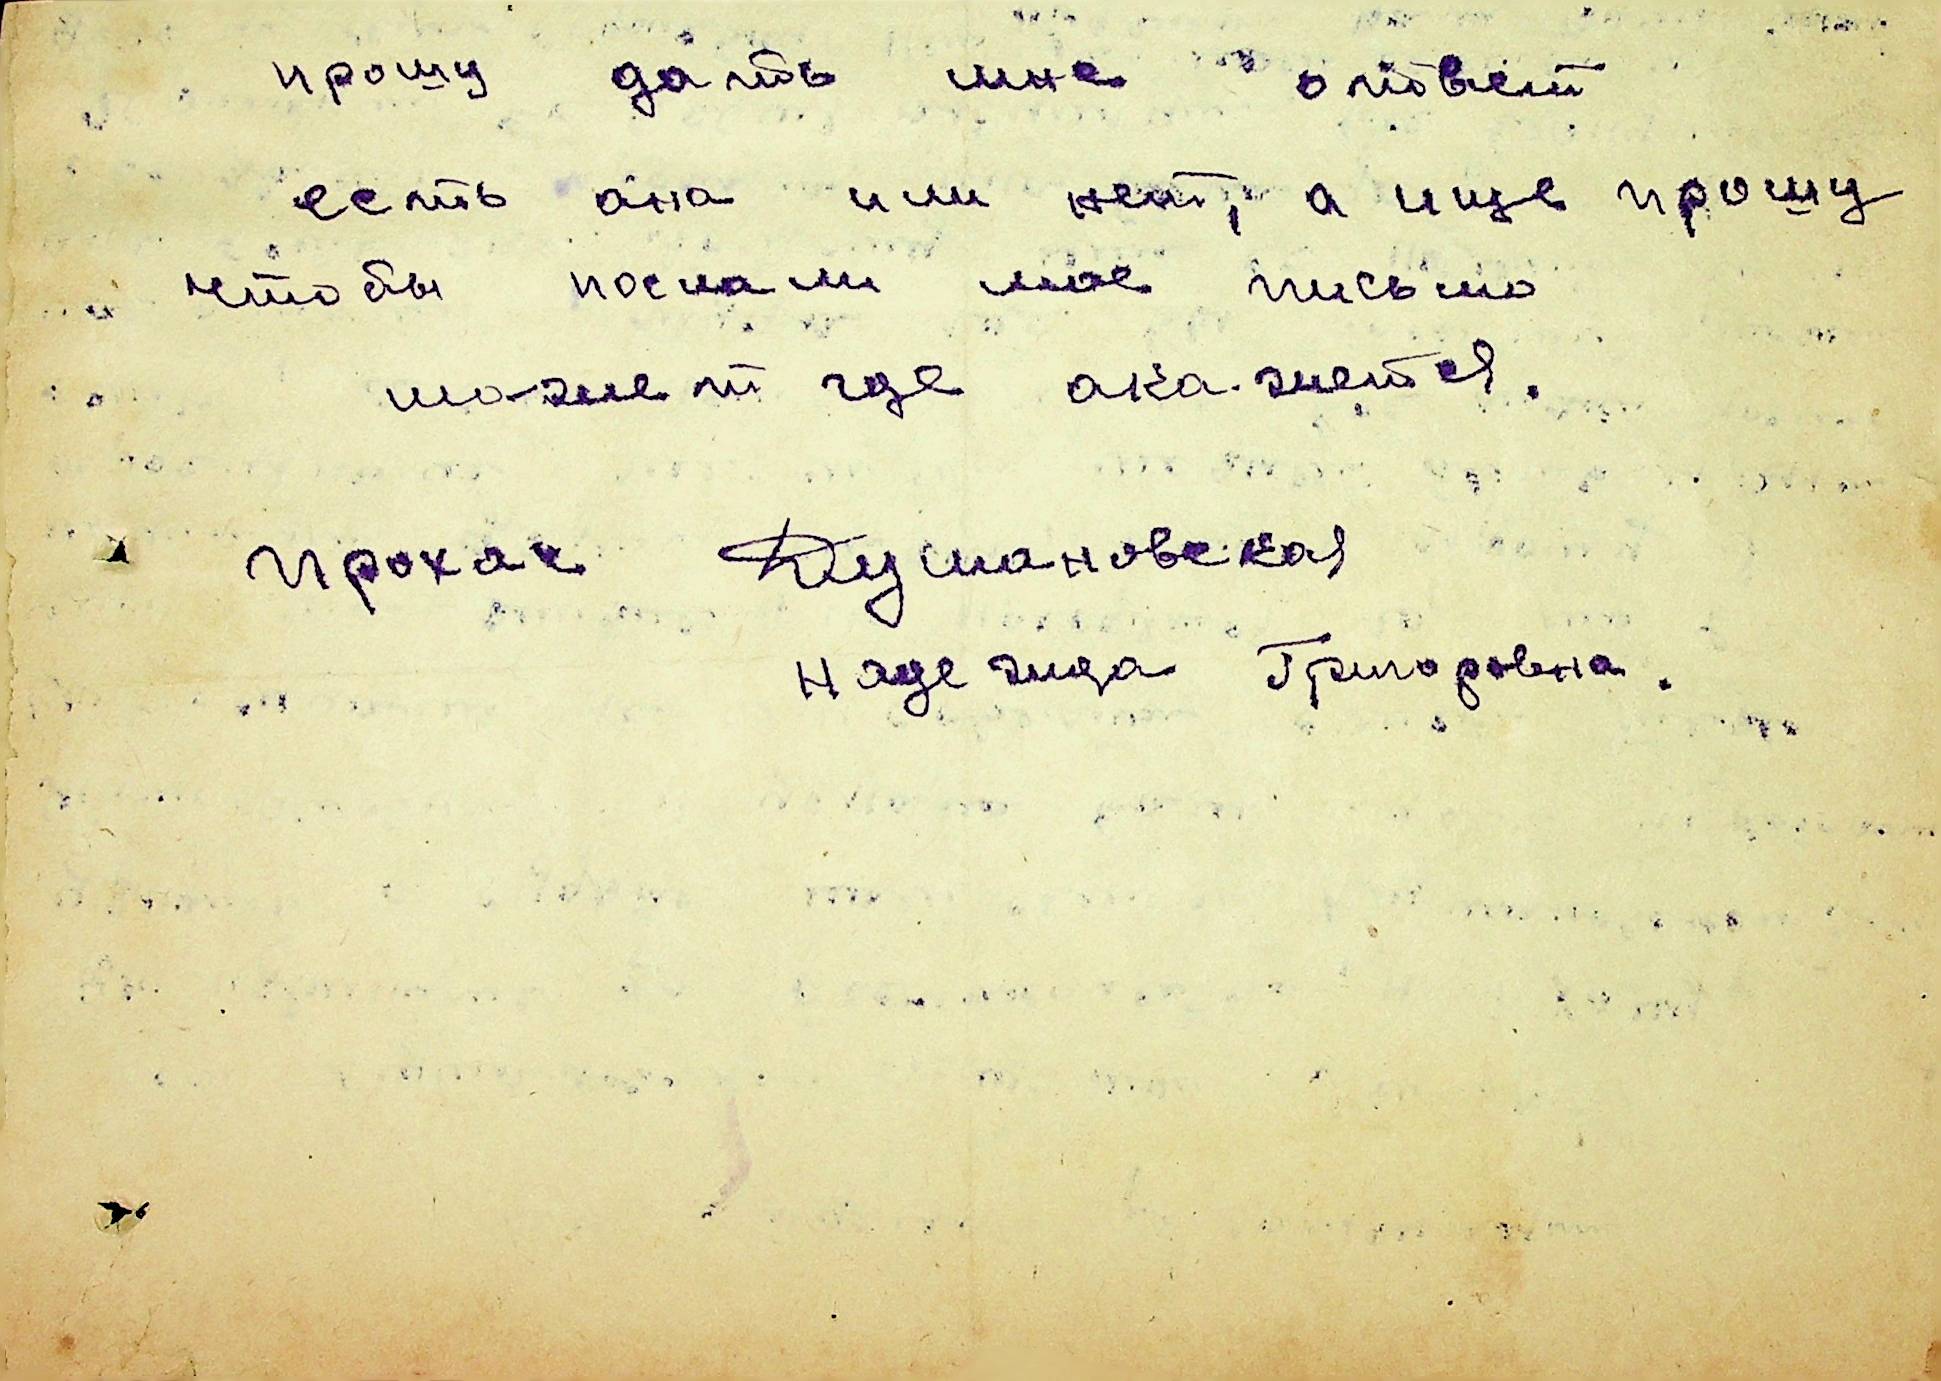 прошу дать мне ответ
есть ана или нет, а ище прошу
чтобы послали мое письмо
может где акажется.
Прохач Думановская
Надежда Григоровна.